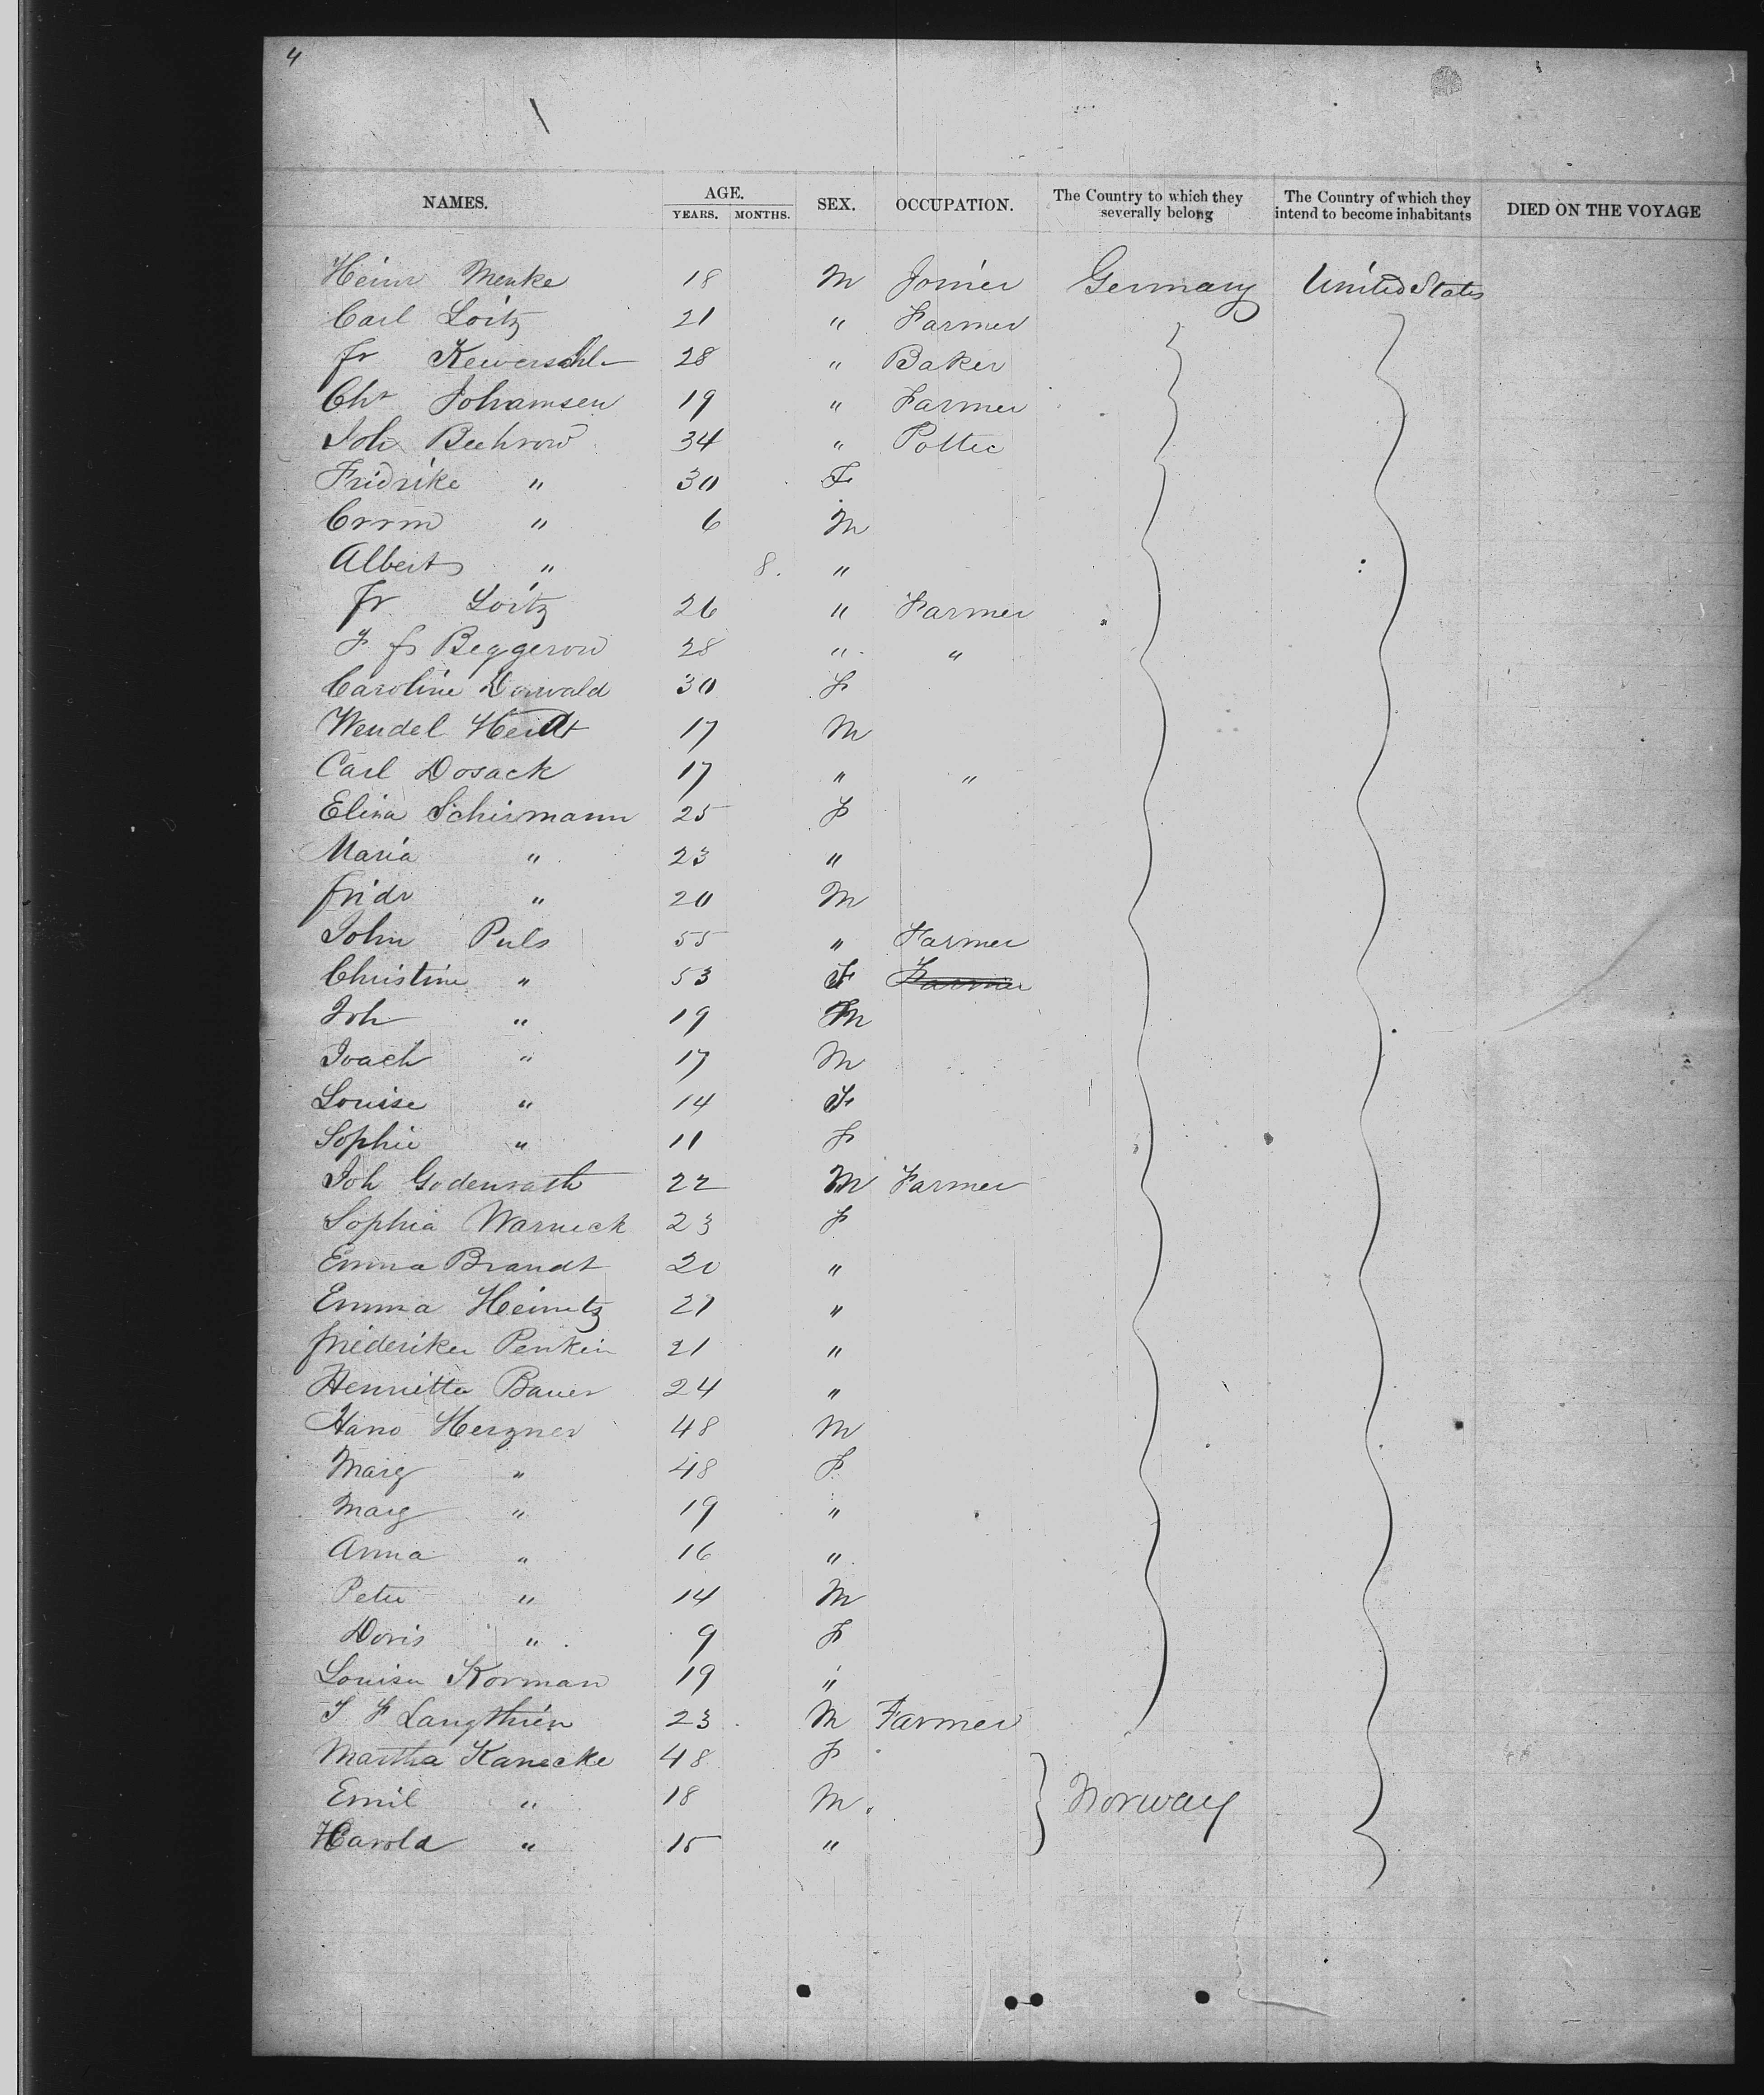 4
NAMES. AGE. SEX. OCCUPATION. The Country to which they severally belong The Country of which they intend to become inhabitants DIED ON THE VOYAGE
YEARS. MONTHS.
Heinr Menke 18 M Joiner Germany United States
Carl Loitz 21 " Farmer
fr 28 " Baker
Chr Johamsen 19 " Farmer
Joh Beehrow 34 " Potter
Fridrike " 30 F
" 6 M
Albert " 8. "
fr Loitz 26 " Farmer
F fr Beggerow 28 " "
Caroline Dorwald 30 F
Wendel Heidt 17 M
Carl Dosack 17 " "
Elisa Schirmann 25 F
Maria " 23 "
fridr " 20 M
John Puls 55 " Farmer
Christine " 53 F Farmer
Joh " 19 M
Joach " 17 M
Louise " 14 F
Sophie " 11 F
Joh Godenrath 22 M Farmer
Sophia Warneck 23 F
Emma Brandt 20 "
Emma Heinitz 21 "
friederike Penkin 21 "
Henrietta Bauer 24 "
Hans Herzner 48 M
Marg " 48 F
Marg " 19 "
Anna " 16 "
Peter " 14 M
Doris " 9 F
Louise Korman 19 "
J F Langthien 23 M Farmer
Martha Kanecke 48 F
Emil " 18 M. Norway
Harold " 15 "